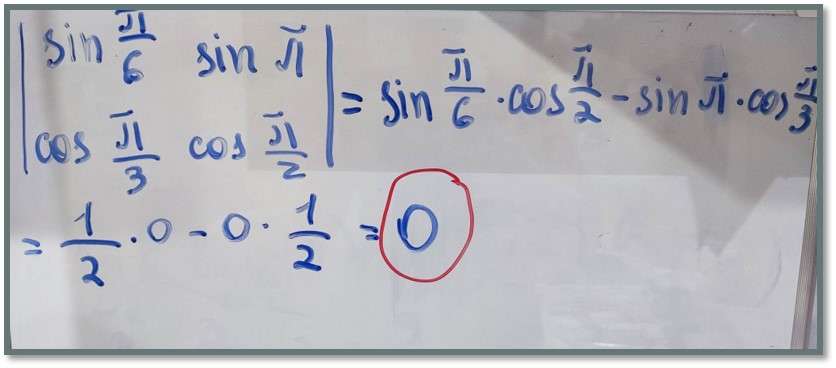 | sin π/6 sin π |
| cos π/3 cos π/2 | = sin π/6 · cos π/2 - sin π · cos π/3
= 1/2 · 0 - 0 · 1/2 = 0